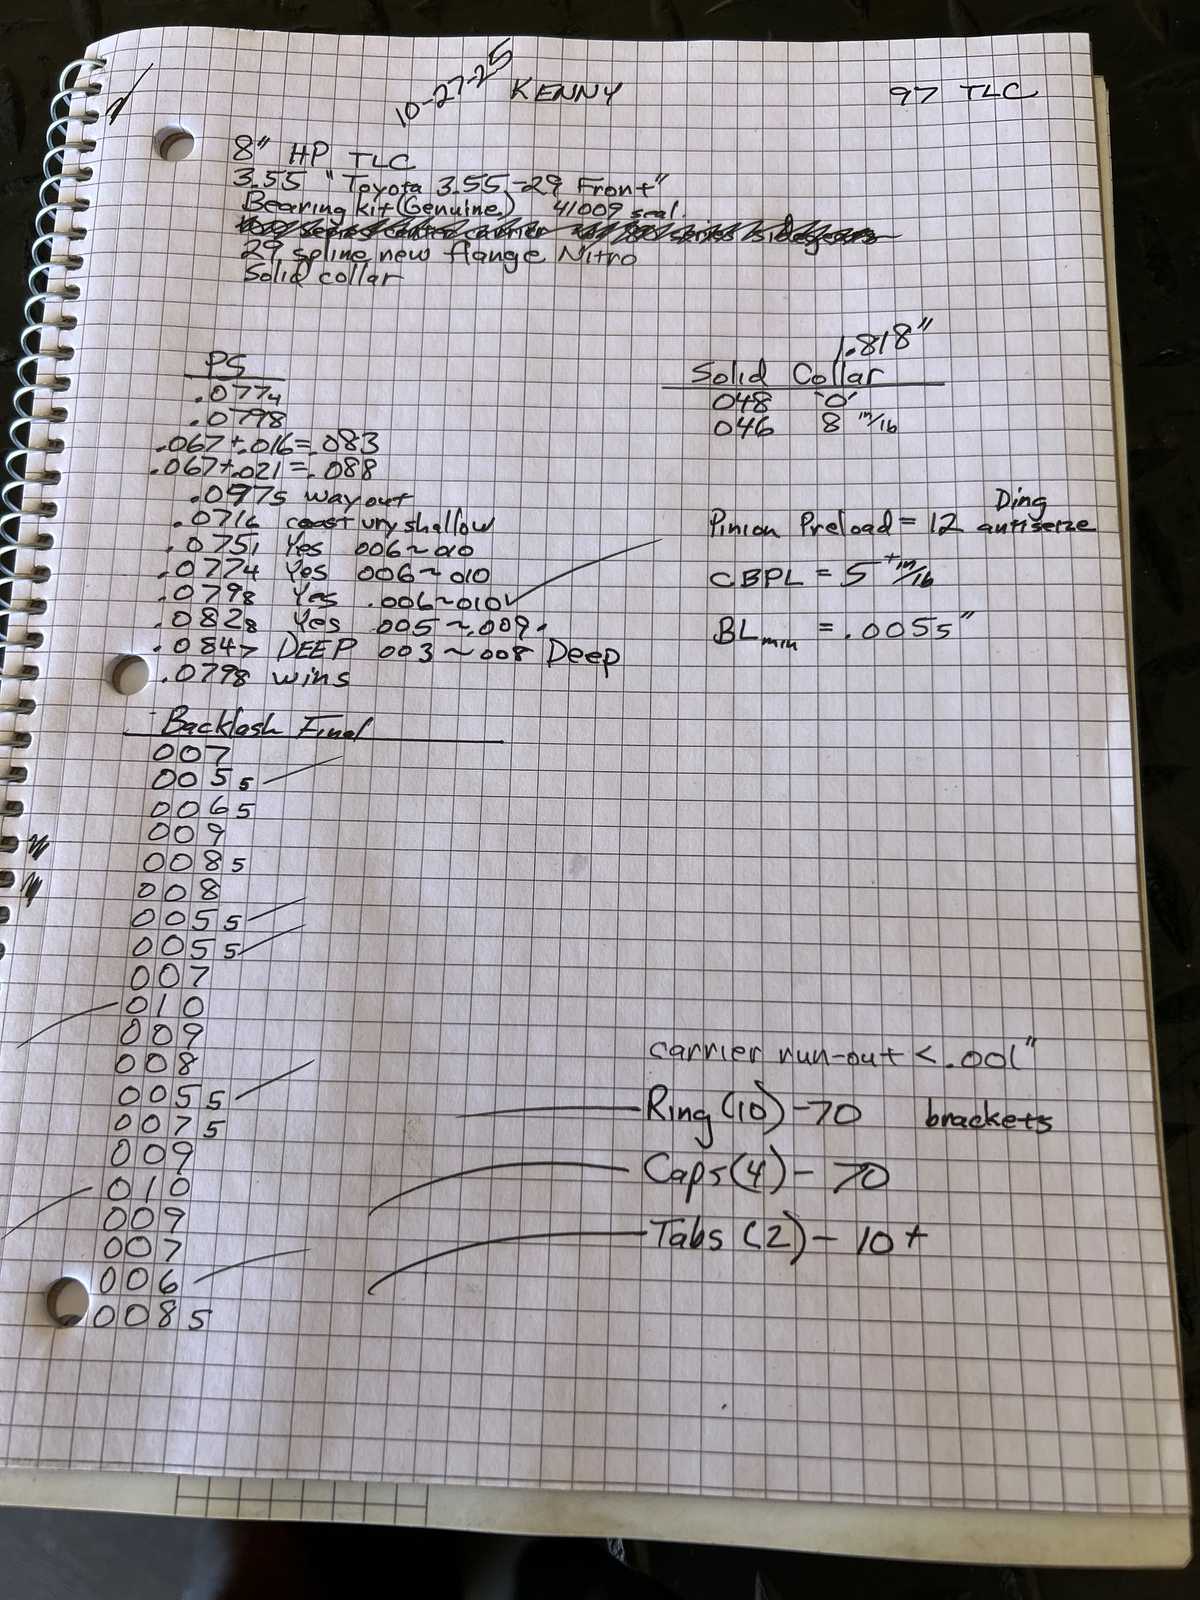 10-27-25 KENNY 97 TLC
8" HP TLC
3.55 "Toyota 3.55-29 Front"
Bearing kit (Genuine) 41009 seal.
29 spline new flange Nitro
Solid collar
PS
.0774
.0798
.067+.016=.083
.067+.021=.088
.0975 way out
.0716 coast vry shallow
.0751 Yes 006~010
.0774 Yes 006~010
.0798 Yes .006~010
.0828 Yes .005~.009
.0847 DEEP 003~008 Deep
.0798 wins
1.818"
Solid Collar
048 "0"
046 8 in/lb
Ding
Pinion Preload = 12 antiseize
CBPL = 5 + in/lb
BLmin = .0055"
Backlash Final
007
0055
0065
009
0085
008
0055
0055
007
010
009
008
0055
0075
009
010
009
007
006
0085
carrier run-out <.001"
Ring (10) - 70 brackets
Caps (4) - 70
Tabs (2) - 10+